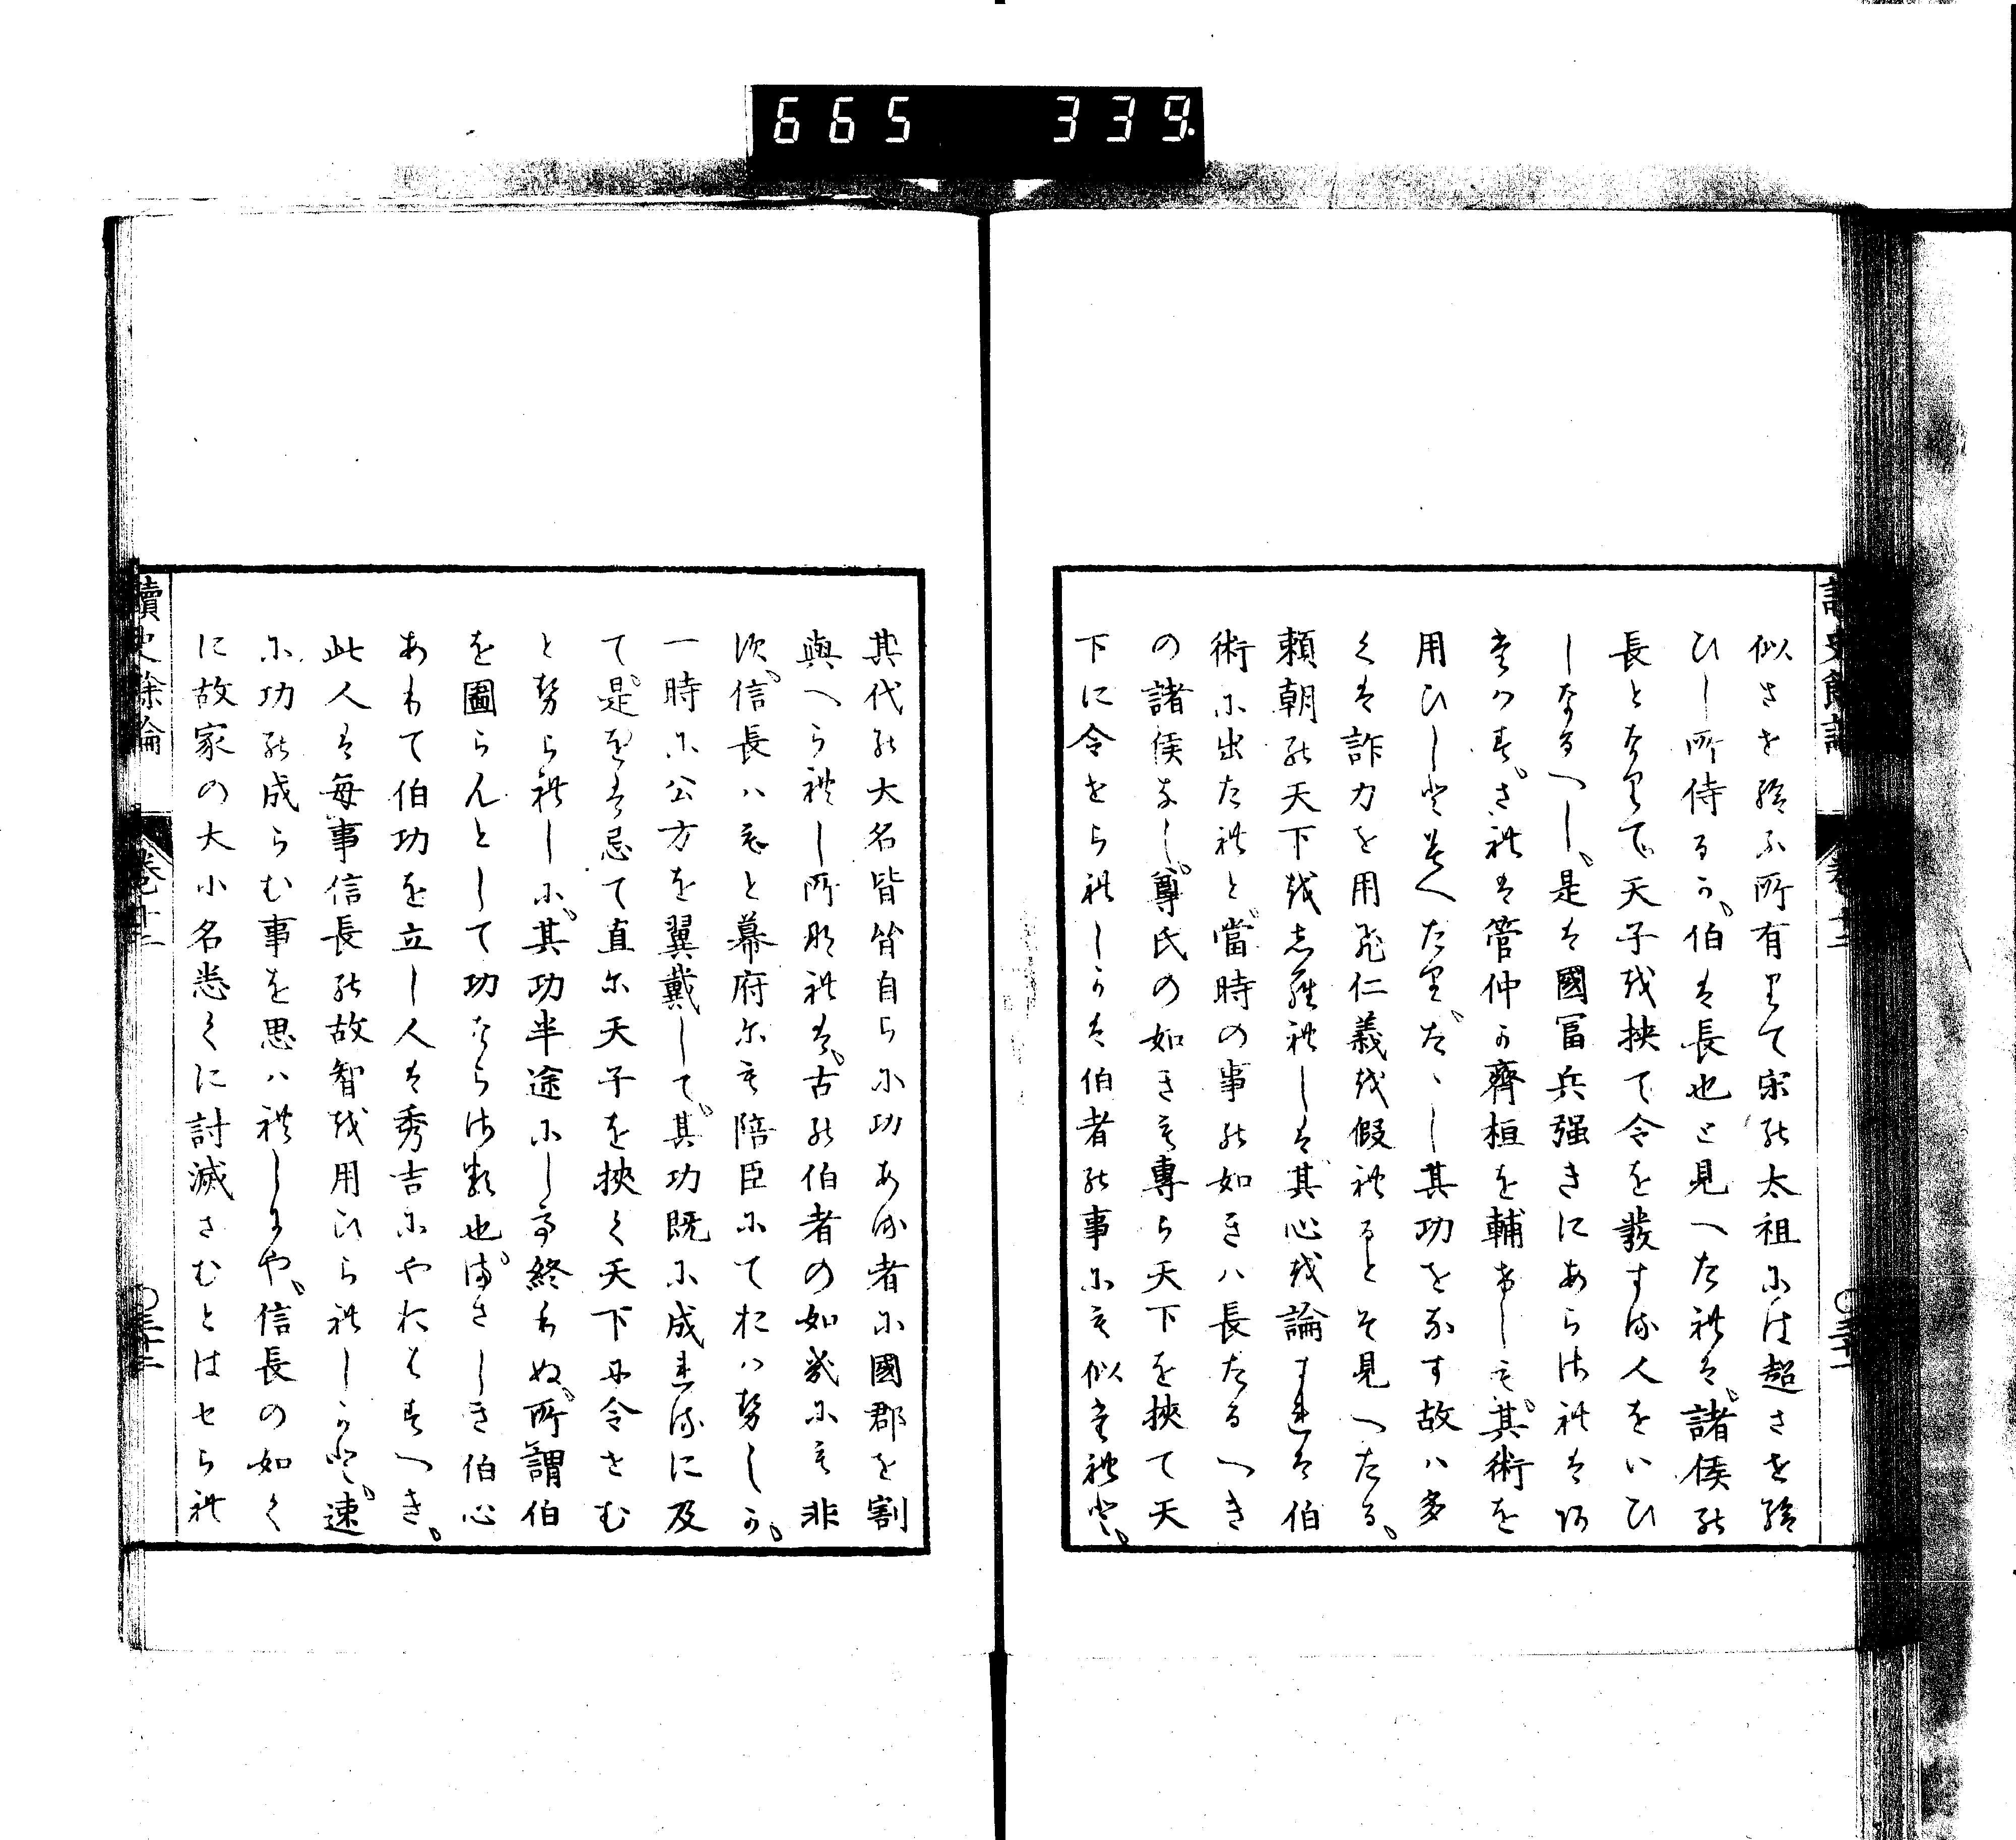 665 339
讀史餘論 卷十二 〇三十一
似させ給ふ所有りて宋の太祖には超させ給
ひし所侍るか、伯は長也と見へたれは、諸侯の
長となりて、天子を挾て令を發する人をいひ
しなるへし、是は國冨兵强きにあらされは叶
ふへからす、されは管仲か齊桓を輔けしも、其術を
用ひしと見へたり、たゝし其功をなす故ハ多
くは詐力を用ひ仁義を假れるとそ見へたる、
頼朝の天下をしられしは其心を論すれは伯
術に出たれと、當時の事の如きハ長たるへき
の諸侯なし、尊氏の如きも專ら天下を挾て天
下に令せられしかは伯者の事にも似たれと、
其代の大名皆皆自らに功ある者に國郡を割
與へられし所なれは、古の伯者の如くにも非
す、信長ハもと幕府にも陪臣にておハせしか、
一時に公方を翼戴して、其功既に成るに及
て、是をは忌て直に天子を挾く天下に令せむ
とせられしに、其功半途にして終りぬ、所謂伯
を圖らんとして功ならさる也、まさしき伯心
ありて伯功を立し人は秀吉にやおはすへき、
此人は每事信長の故智を用ひられしかと、速
に功の成らむ事を思ハれしにや、信長の如く
に故家の大小名悉くに討滅さむとはせられ
讀史餘論 卷十二 〇三十二